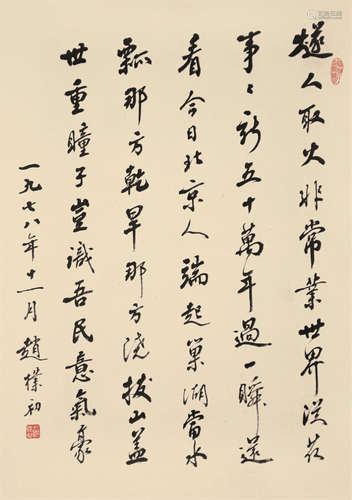 燧人取火非常業世界從茲
事事新五十萬年過一瞬還
看今日北京人端起巢湖當水
瓢那方乾旱那方澆拔山蓋
世重瞳子豈識吾民意氣豪
一九七八年十一月趙樸初